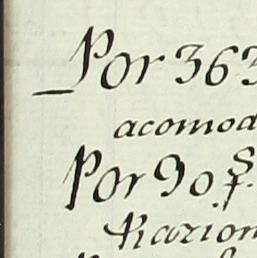 Por 363
acomod
Por 90 ps.
Razion